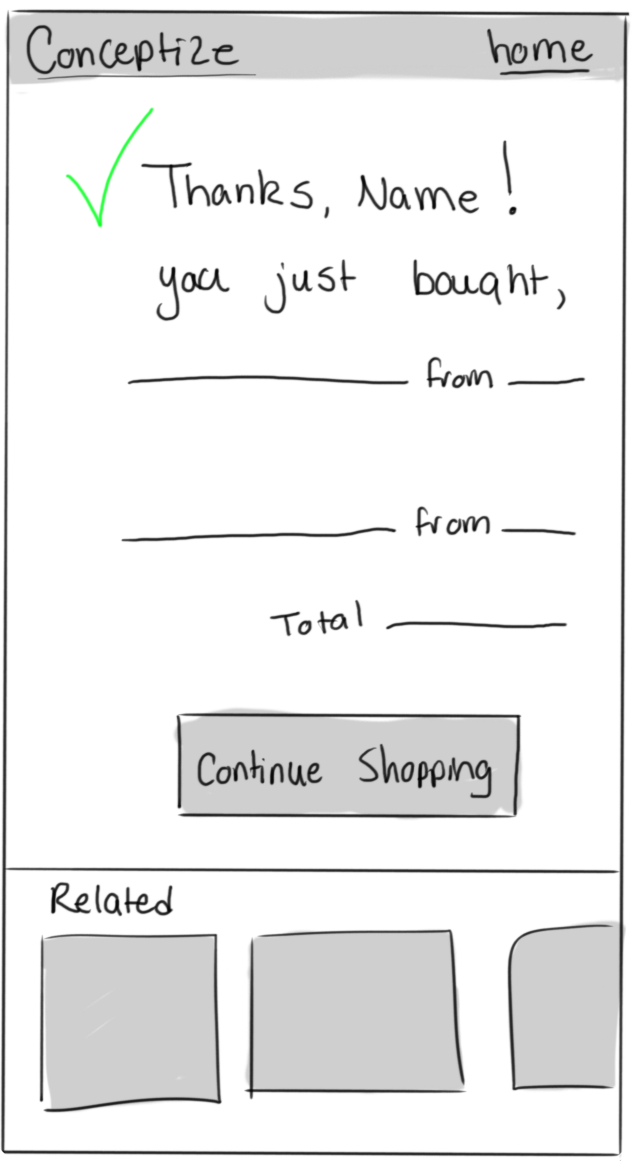 Conceptize home
Thanks, Name!
you just bought,
from
from
Total
Continue Shopping
Related